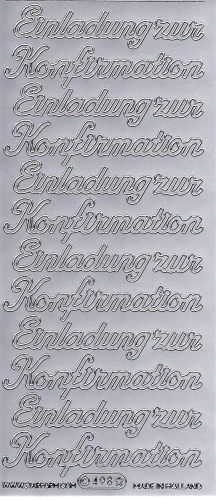 Einladung zur
Konfirmation
Einladung zur
Konfirmation
Einladung zur
Konfirmation
Einladung zur
Konfirmation
Einladung zur
Konfirmation
Einladung zur
Konfirmation
WWW.STARFORM.COM © 498 MADE IN HOLLAND